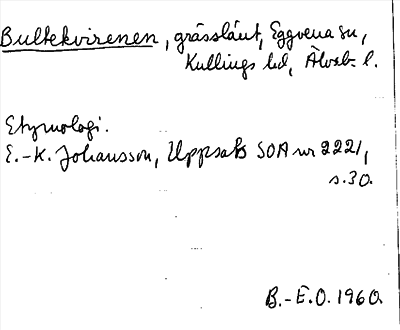 Bultekvirenen, grässlänt, Eggvena sn,
Kullings hd, Älvsb. l.
Etymologi.
E.-K. Johansson, Uppsats SOA nr 2221,
s.30.
B.-E.O. 1960.